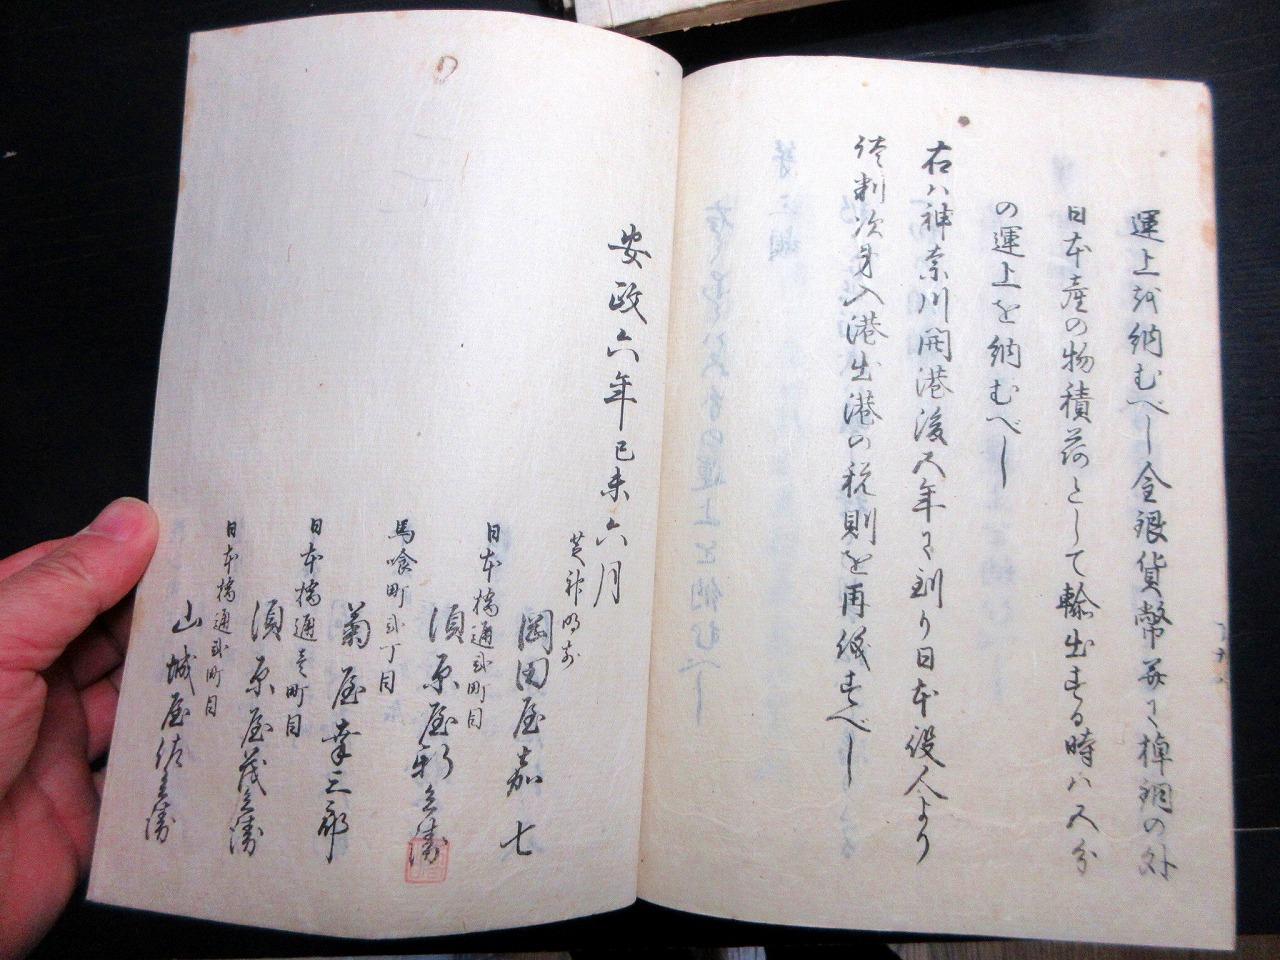 運上を納むべし金銀貨幣並に棹銅の外
日本産の物積荷として輸出する時ハ五分
の運上を納むべし
右ハ神奈川開港後五年に到り日本役人より
談判次第入港出港の税則を再議すべし
安政六年己未六月
芝神明前
岡田屋嘉七
日本橋通弐町目
須原屋新兵衛
馬喰町弐丁目
菊屋幸三郎
日本橋通壱町目
須原屋茂兵衛
日本橋通弐町目
山城屋佐兵衛